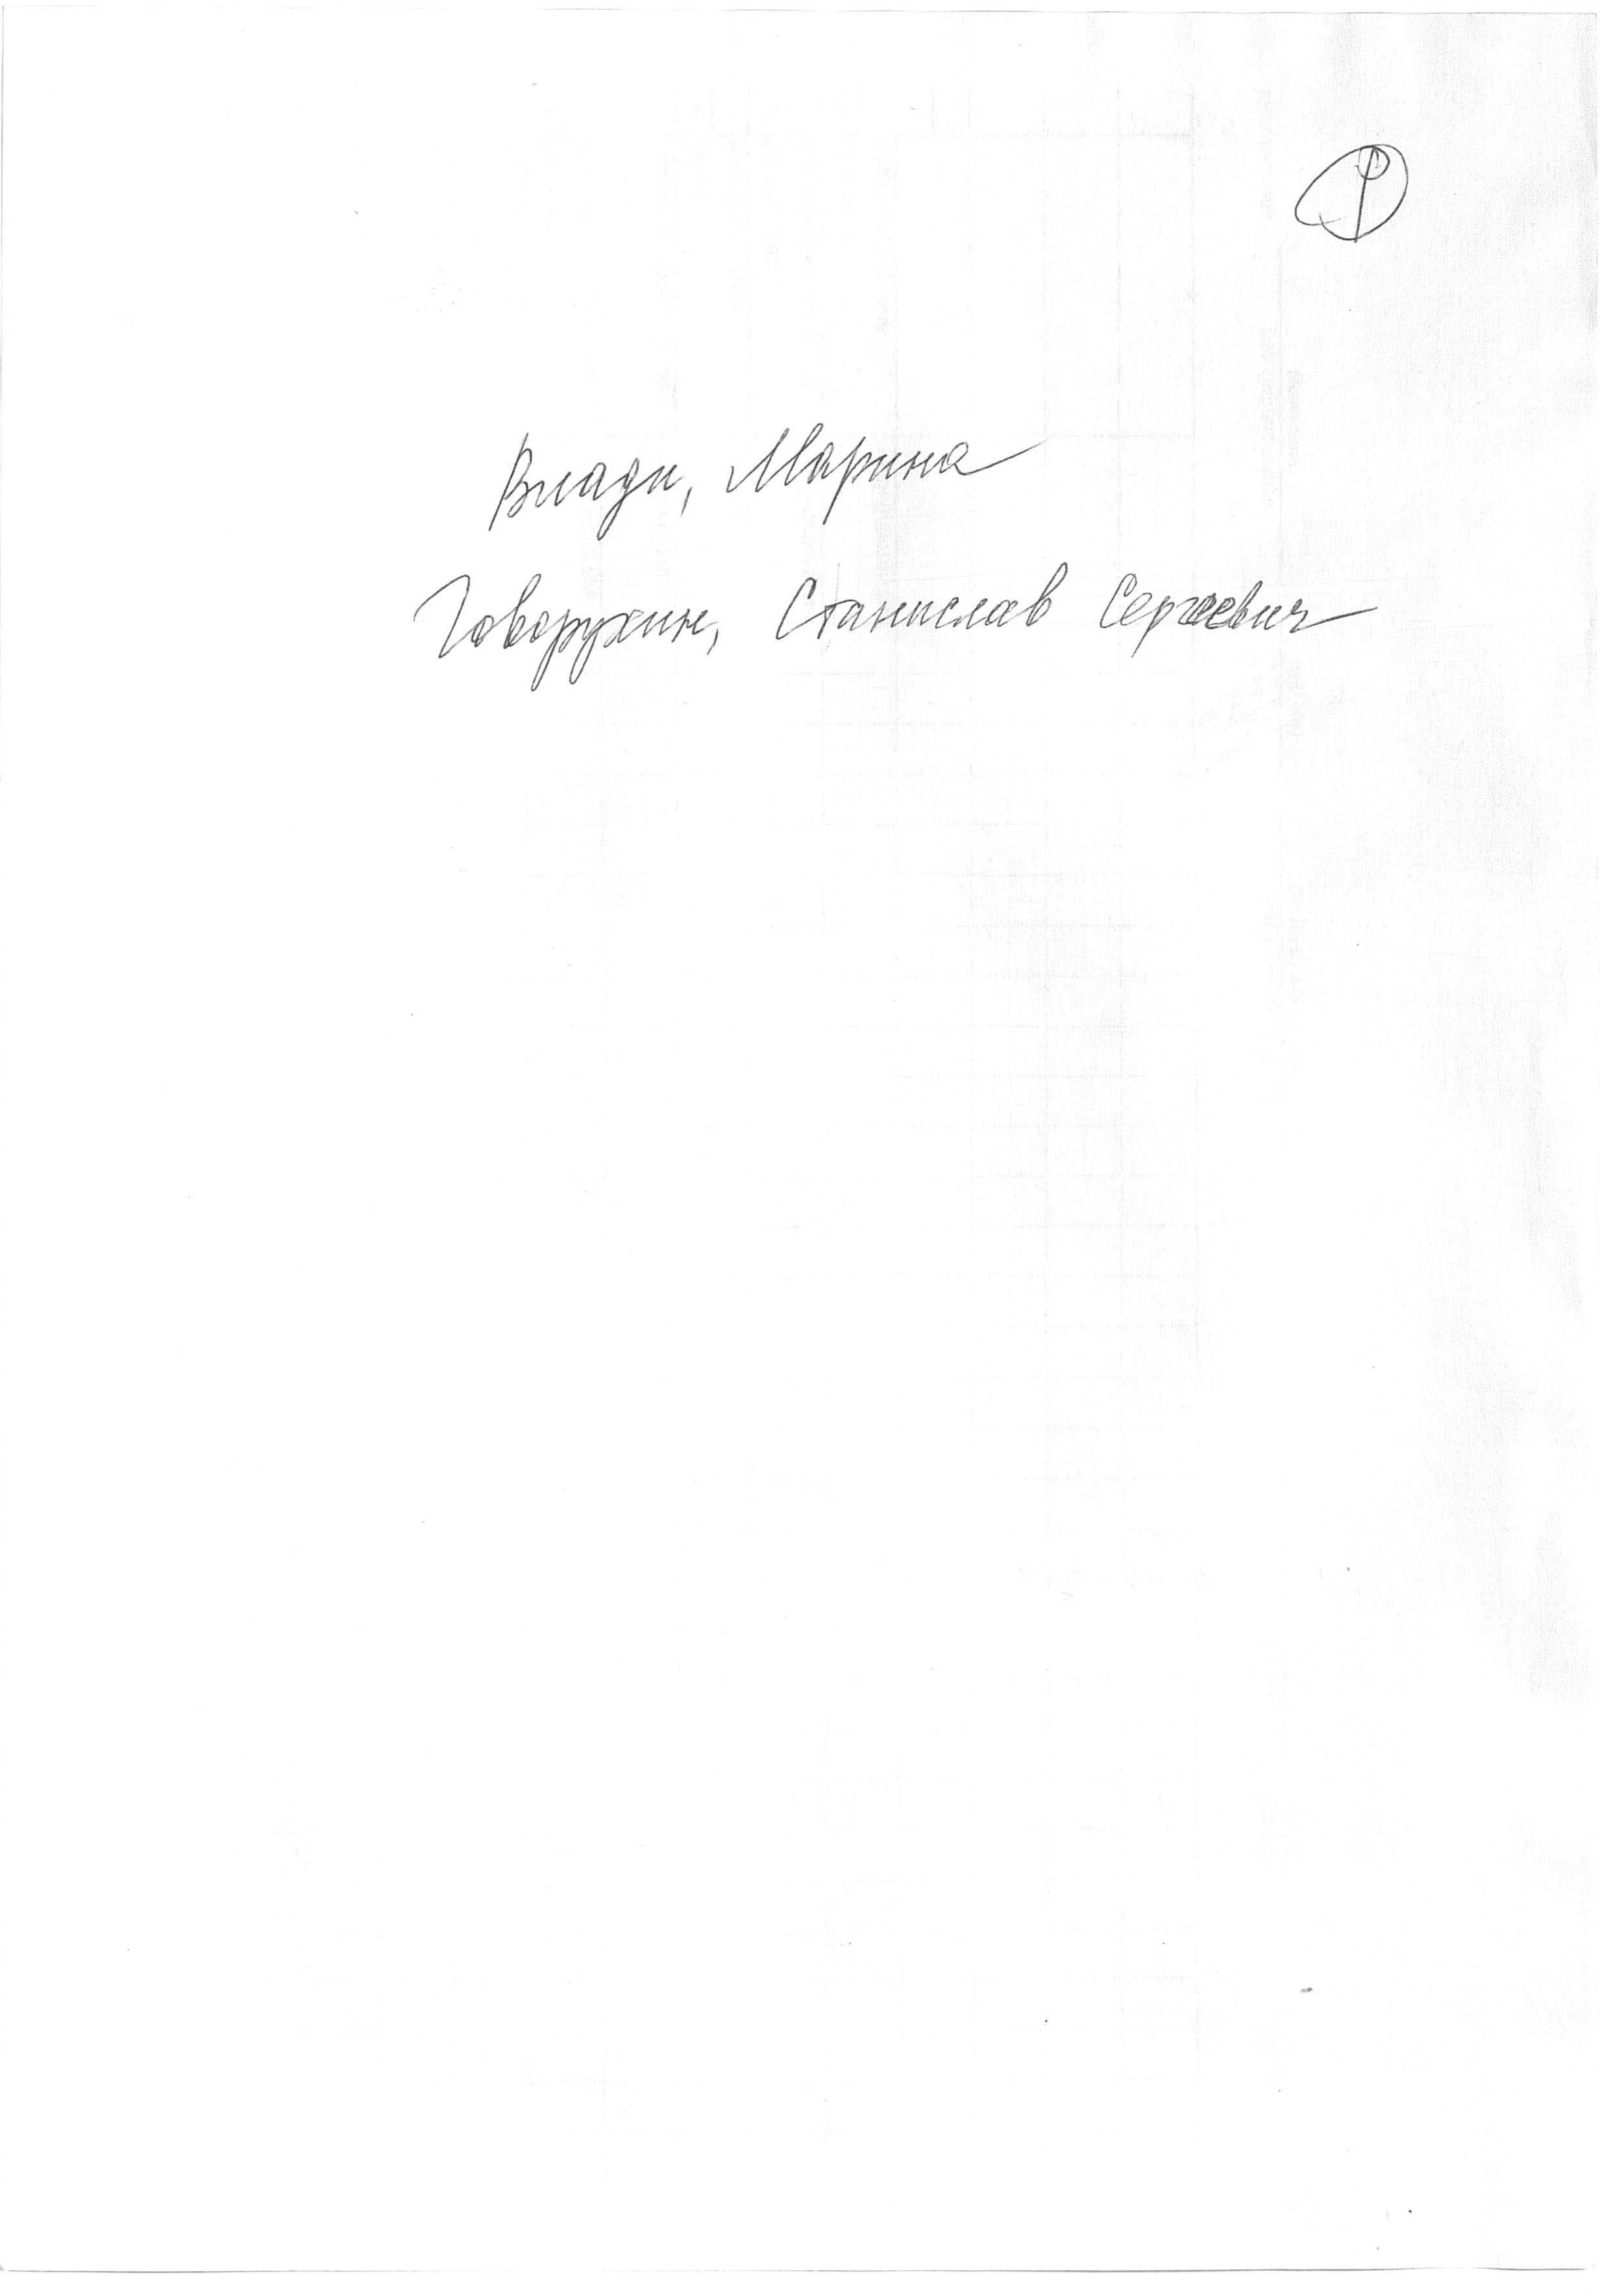 Влади, Марина
Говорухин, Станислав Сергеевич